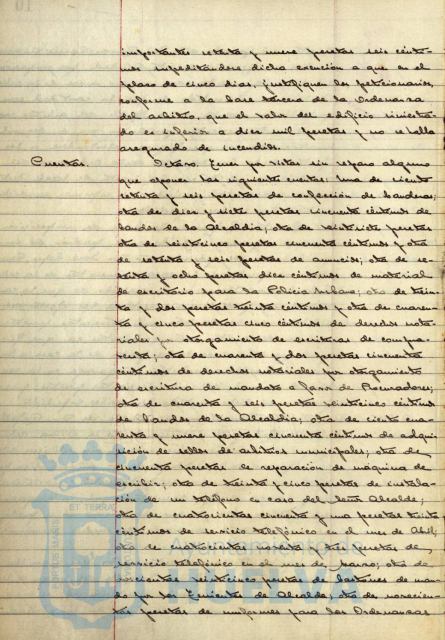 importantes setenta y nueve pesetas seis cénti-
mos supeditándose dicha exención a que en el
plazo de cinco días, justifiquen los peticionarios,
conforme a la base tercera de la Ordenanza
del arbitrio, que el valor del edificio siniestra-
do es inferior a diez mil pesetas y no estaba
asegurado de incendios.
Cuentas.
Octavo. Tener por vistas sin reparo alguno
que oponer las siguientes cuentas: Una de ciento
setenta y seis pesetas de confección de banderas;
otra de diez y siete pesetas cincuenta céntimos de
bandos de la Alcaldía; otra de veintisiete pesetas
otra de veinticinco pesetas cincuenta céntimos y otra
de setenta y seis pesetas de anuncios; otra de se-
senta y ocho pesetas diez céntimos de material
de escritorio para la Policía Urbana; otra de trein-
ta y dos pesetas treinta céntimos y otra de cuaren-
ta y cinco pesetas cinco céntimos de derechos nota-
riales por otorgamiento de escrituras de compra-
venta; otra de cuarenta y dos pesetas cincuenta
céntimos de derechos notariales por otorgamiento
de escritura de mandato a favor de Procuradores;
otra de cuarenta y seis pesetas veinticinco céntimos
de bandos de la Alcaldía; otra de ciento cua-
renta y nueve pesetas cincuenta céntimos de adqui-
sición de sellos de arbitrios municipales; otra de
cincuenta pesetas de reparación de máquina de
escribir; otra de treinta y cinco pesetas de instala-
ción de un teléfono en casa del Señor Alcalde;
otra de cuatrocientas cincuenta y una pesetas treinta
céntimos de servicio telefónico en el mes de Abril;
otra de cuatrocientas noventa y tres pesetas de
servicio telefónico en el mes de Marzo; otra de
novecientas veinticinco pesetas de bastones de man-
do por los Tenientes de Alcalde; otra de novecien-
tas pesetas de uniformes para los Ordenanzas